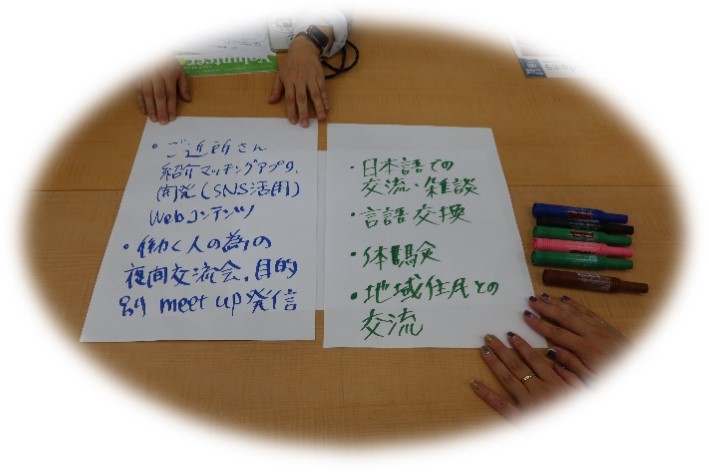 Volunteer
・ご近所さん
紹介マッチングアプリ.
開発(SNS活用)
Webコンテンツ
・働く人の為の
夜間交流会.目的
別 meet up 発信
・日本語での
交流・雑談
・言語交換
・体験
・地域住民との
交流